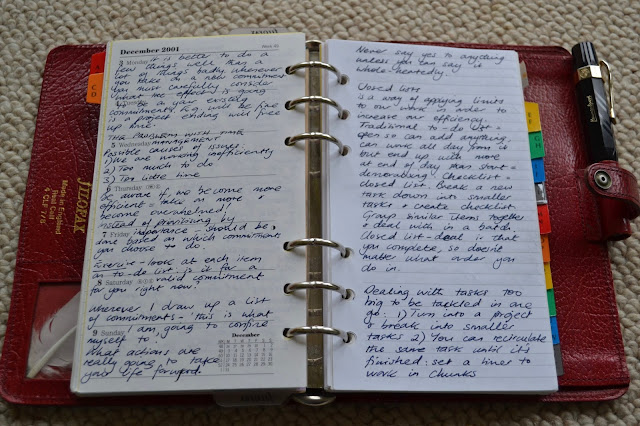 December 2001
3 Monday it is better to do a
few things well than a
lot of things badly whenever
you take on a new commitment
you must carefully consider
what the effect is going
to be on your existing
commitments eg will be fine
is a project ending will free
up time.
The Problem with time
5 Wednesday management
Possible causes of issues:
1) We are working inefficiently
2) Too much to do
3) Too little time
6 Thursday
be aware if we become more
efficient = take on more +
become overwhelmed,
instead of prioritising by
7 Friday importance - should be
done based on which commitments
you choose to do.
Exercise - look at each item
on to-do list. is it for a
8 Saturday valid commitment
for you right now.
Whenever I draw up a list
of commitments - 'this is what
9 Sunday I am going to confine
myself to.'
What actions are
really going to take
your life forward.
December
FILOFAX
Made in England
Real Calf
4 CLF 7/8
Never say yes to anything
unless you can say it
whole-heartedly.
Closed lists
is a way of applying limits
to our work in order to
increase our efficiency.
Traditional to-do list =
open so can add anything,
can work all day from it
but end up with more
at end of day than start =
demoralising. Checklist =
closed list. Break a new
task down into smaller
tasks + create checklist.
Group similar items together
+ deal with in a batch.
Closed list - deal is that
you complete, so doesn't
matter what order you
do in.
Dealing with tasks too
big to be tackled in one
go: 1) Turn into a project
+ break into smaller
tasks 2) You can recirculate
the same task until it's
finished: set a timer to
work in chunks